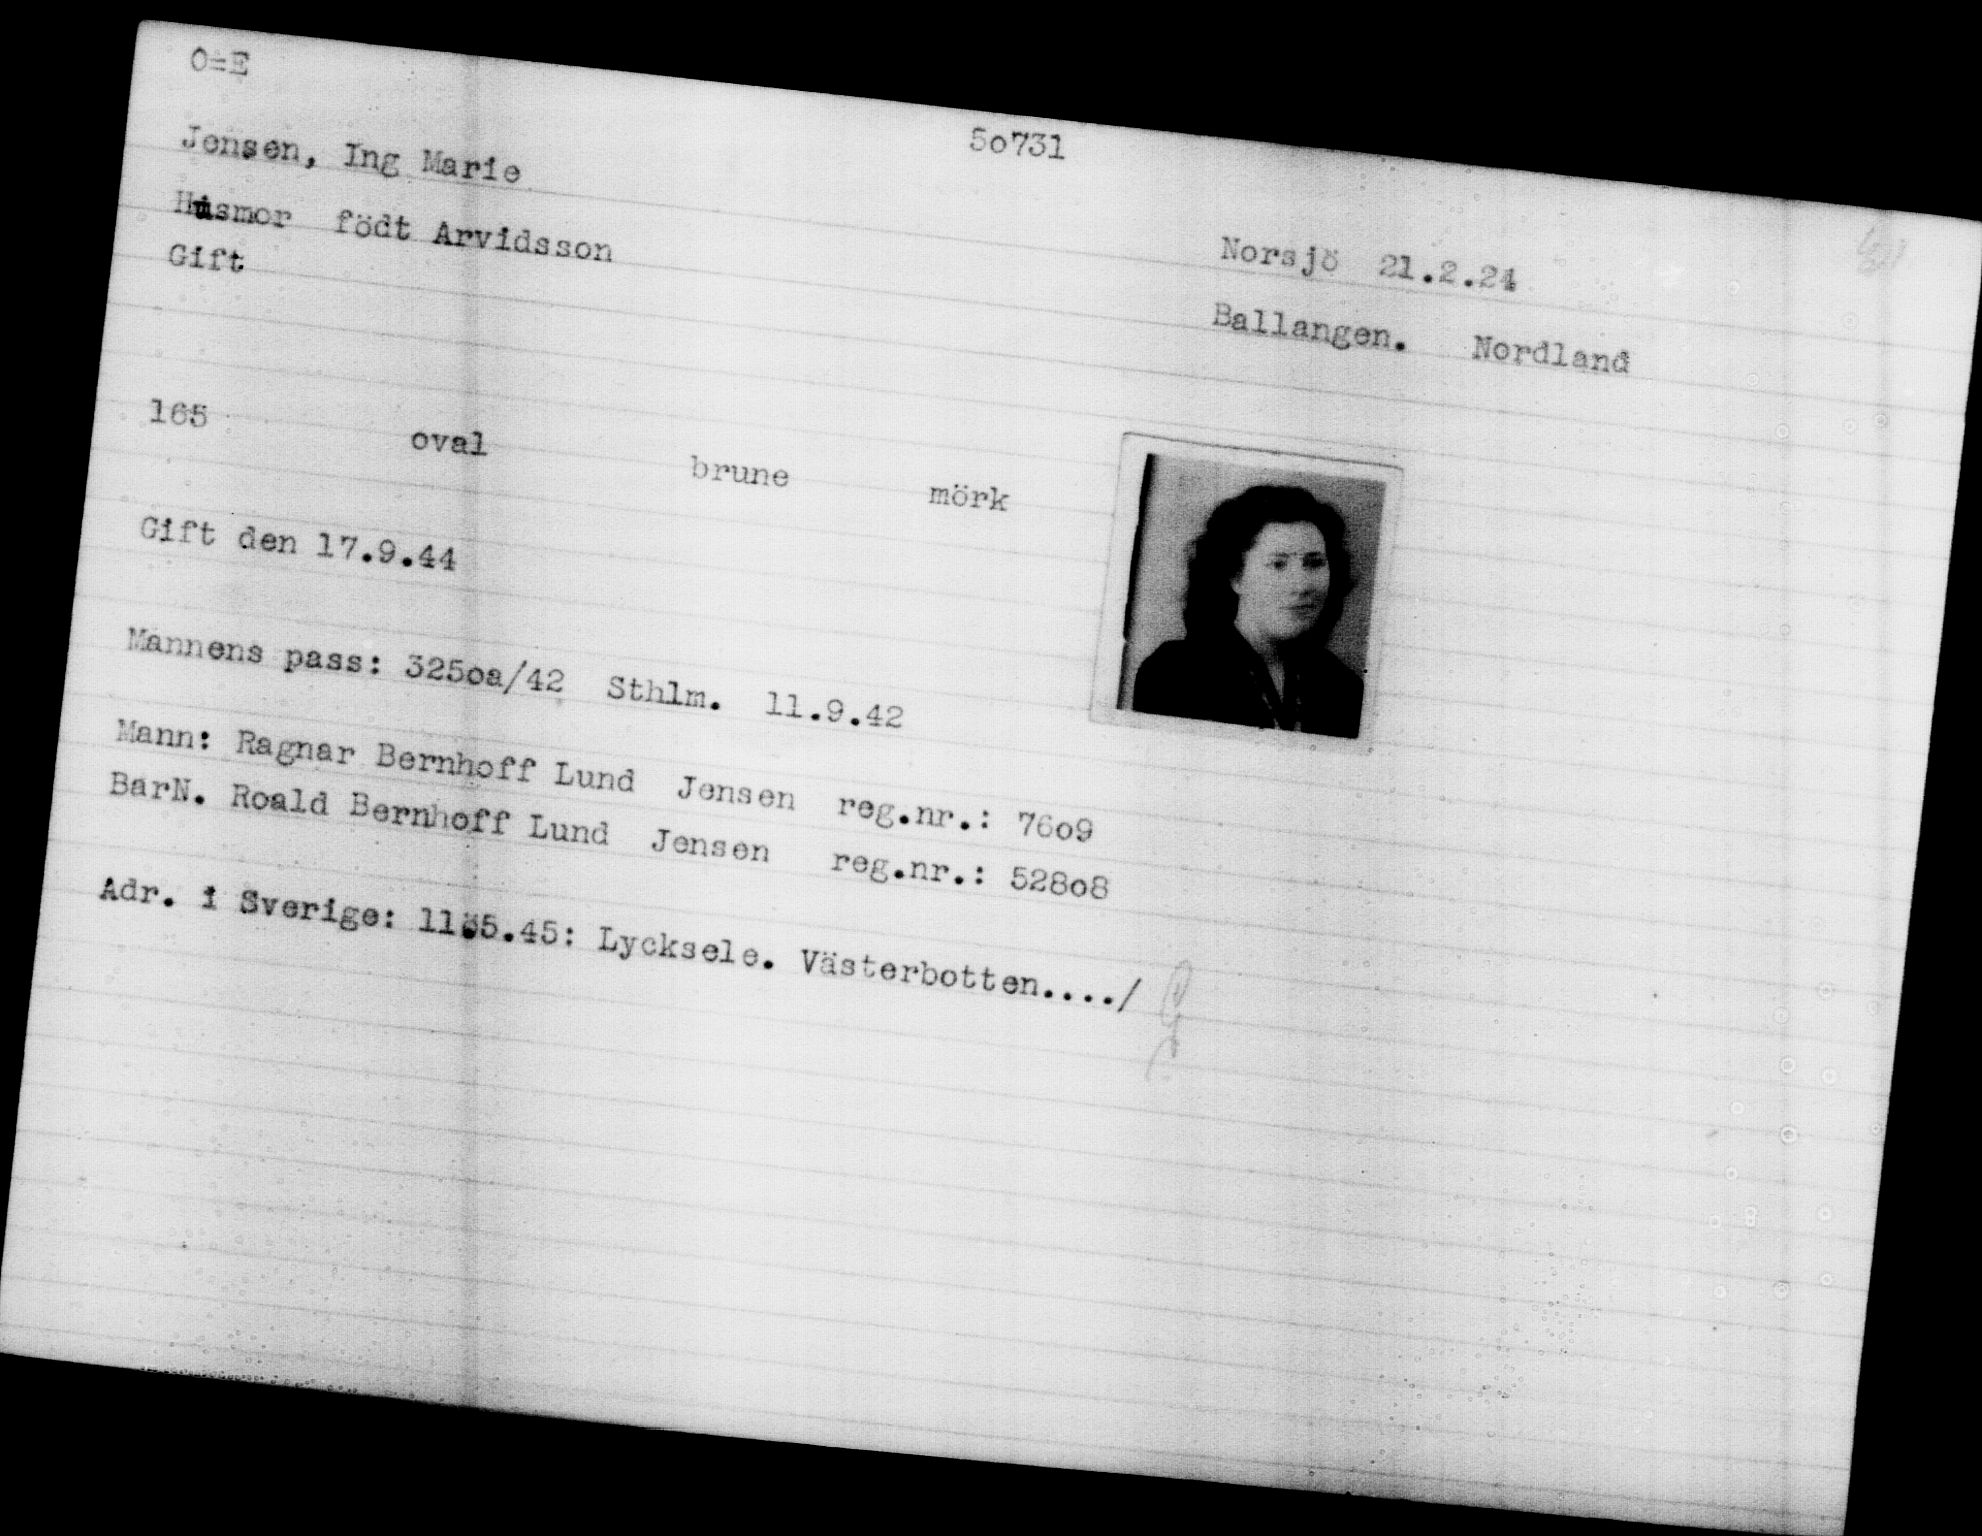 O=E
50731
Jensen, Ing Marie
Husmor födt Arvidsson
Norsjö 21.2.24
Gift
Ballangen. Nordland
165 oval brune mörk
Gift den 17.9.44
Mannens pass: 3250a/42 Sthlm. 11.9.42
Mann: Ragnar Bernhoff Lund Jensen reg.nr.: 7609
BarN. Roald Bernhoff Lund Jensen reg.nr.: 52808
Adr. i Sverige: 11.5.45: Lycksele. Västerbotten..../